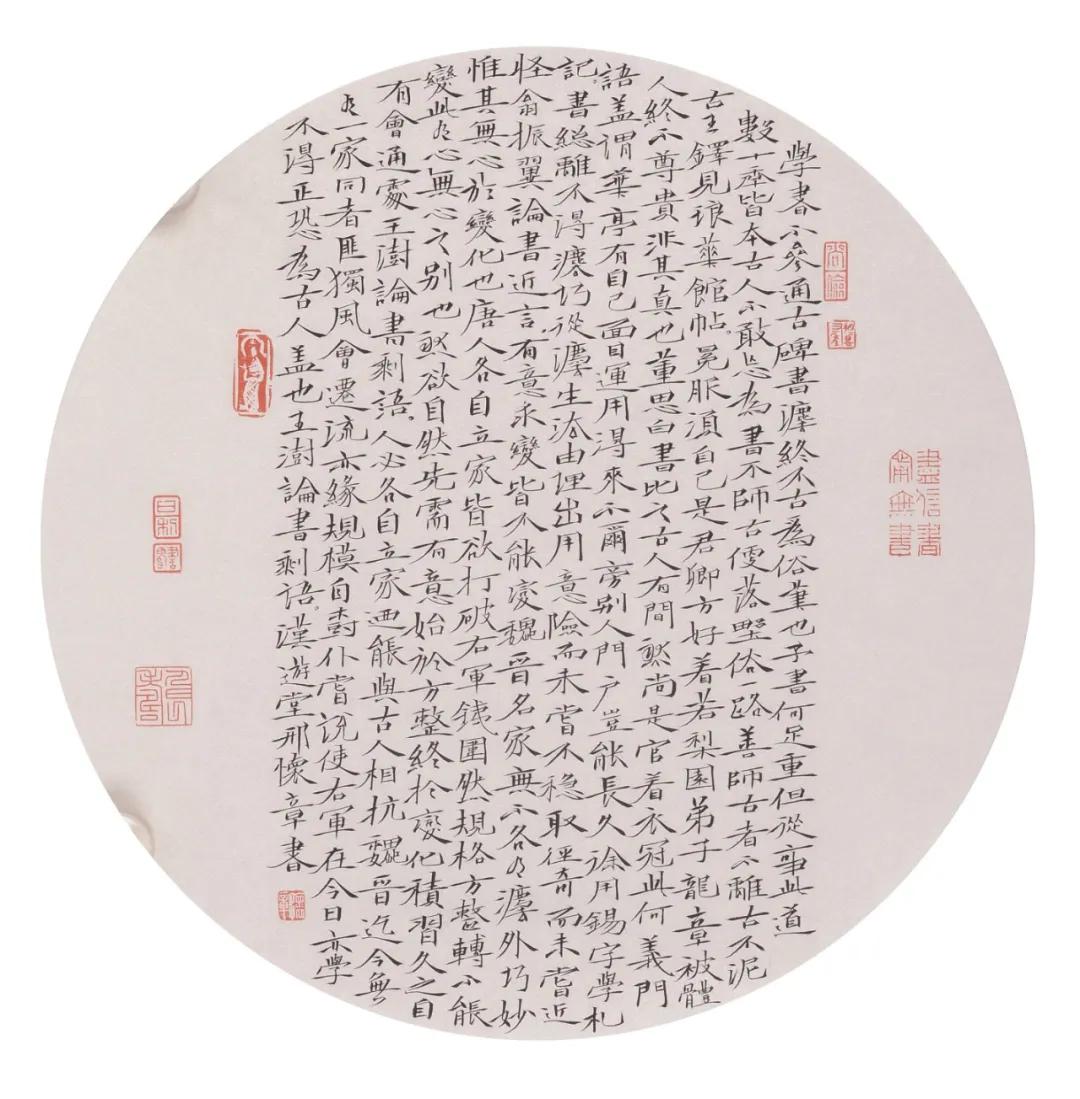 學書不參通古碑書灋終不古為俗筆也予書何足重但從事此道
數十季皆本古人不敢忘為書不師古便落野俗一路善師古者不離古不泥
古王鐸見琅華館帖冕脤須自己是君卿方好着若梨園弟子龍章被體
人終不尊貴非其真也董思白書比之古人有間然尚是官着衣冠此何義門
語蓋謂華亭有自己面目運用得來不爾旁別人門戶豈能長久徐用錫字學札
記書總離不得灋巧從灋生法由理出用意險而未嘗不穩取徑奇而未嘗近
怪翁振翼論書近言有意求變皆不能變魏晉名家無不各有灋外巧妙
惟其無心於變化也唐人各自立家皆欲打破右軍鐵圍然規格方整轉不能
變此有心無心之別也然欲自然先需有意始於方整終於變化積習久之自
有會通處王澍論書剩語人必各自立家乃能與古人相抗魏晉迄今無
有一家同者匪獨風會遷流亦緣規模自樹仆嘗說使右軍在今日亦學
不得正恐為古人蓋也王澍論書剩語漢遊堂邢懷章書
盡信書
不如無書